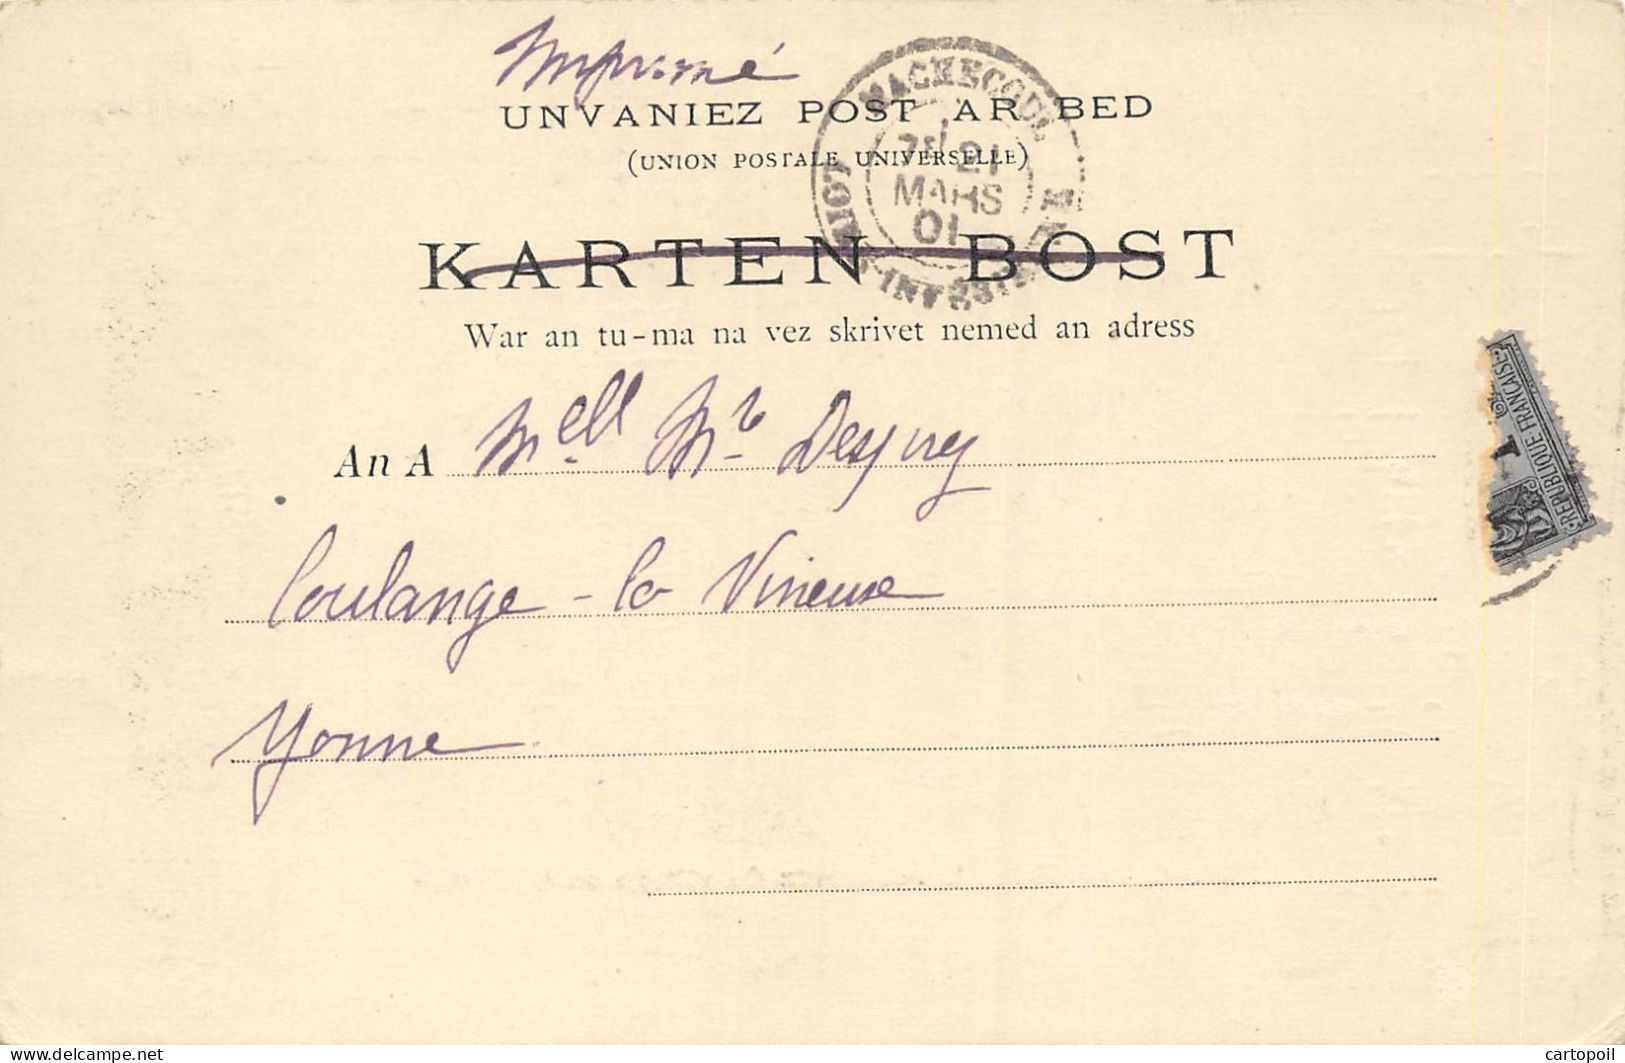 Imprimé
UNVANIEZ POST AR BED
(UNION POSTALE UNIVERSELLE)
KARTEN BOST
War an tu-ma na vez skrivet nemed an adress
MACHECOUL
7E 21
MARS
01
LOIRE INFERIEURE
An A Mell Mte
Coulange - la Vineuse
Yonne
REPUBLIQUE FRANÇAISE
Delcampe.net
cartopoil